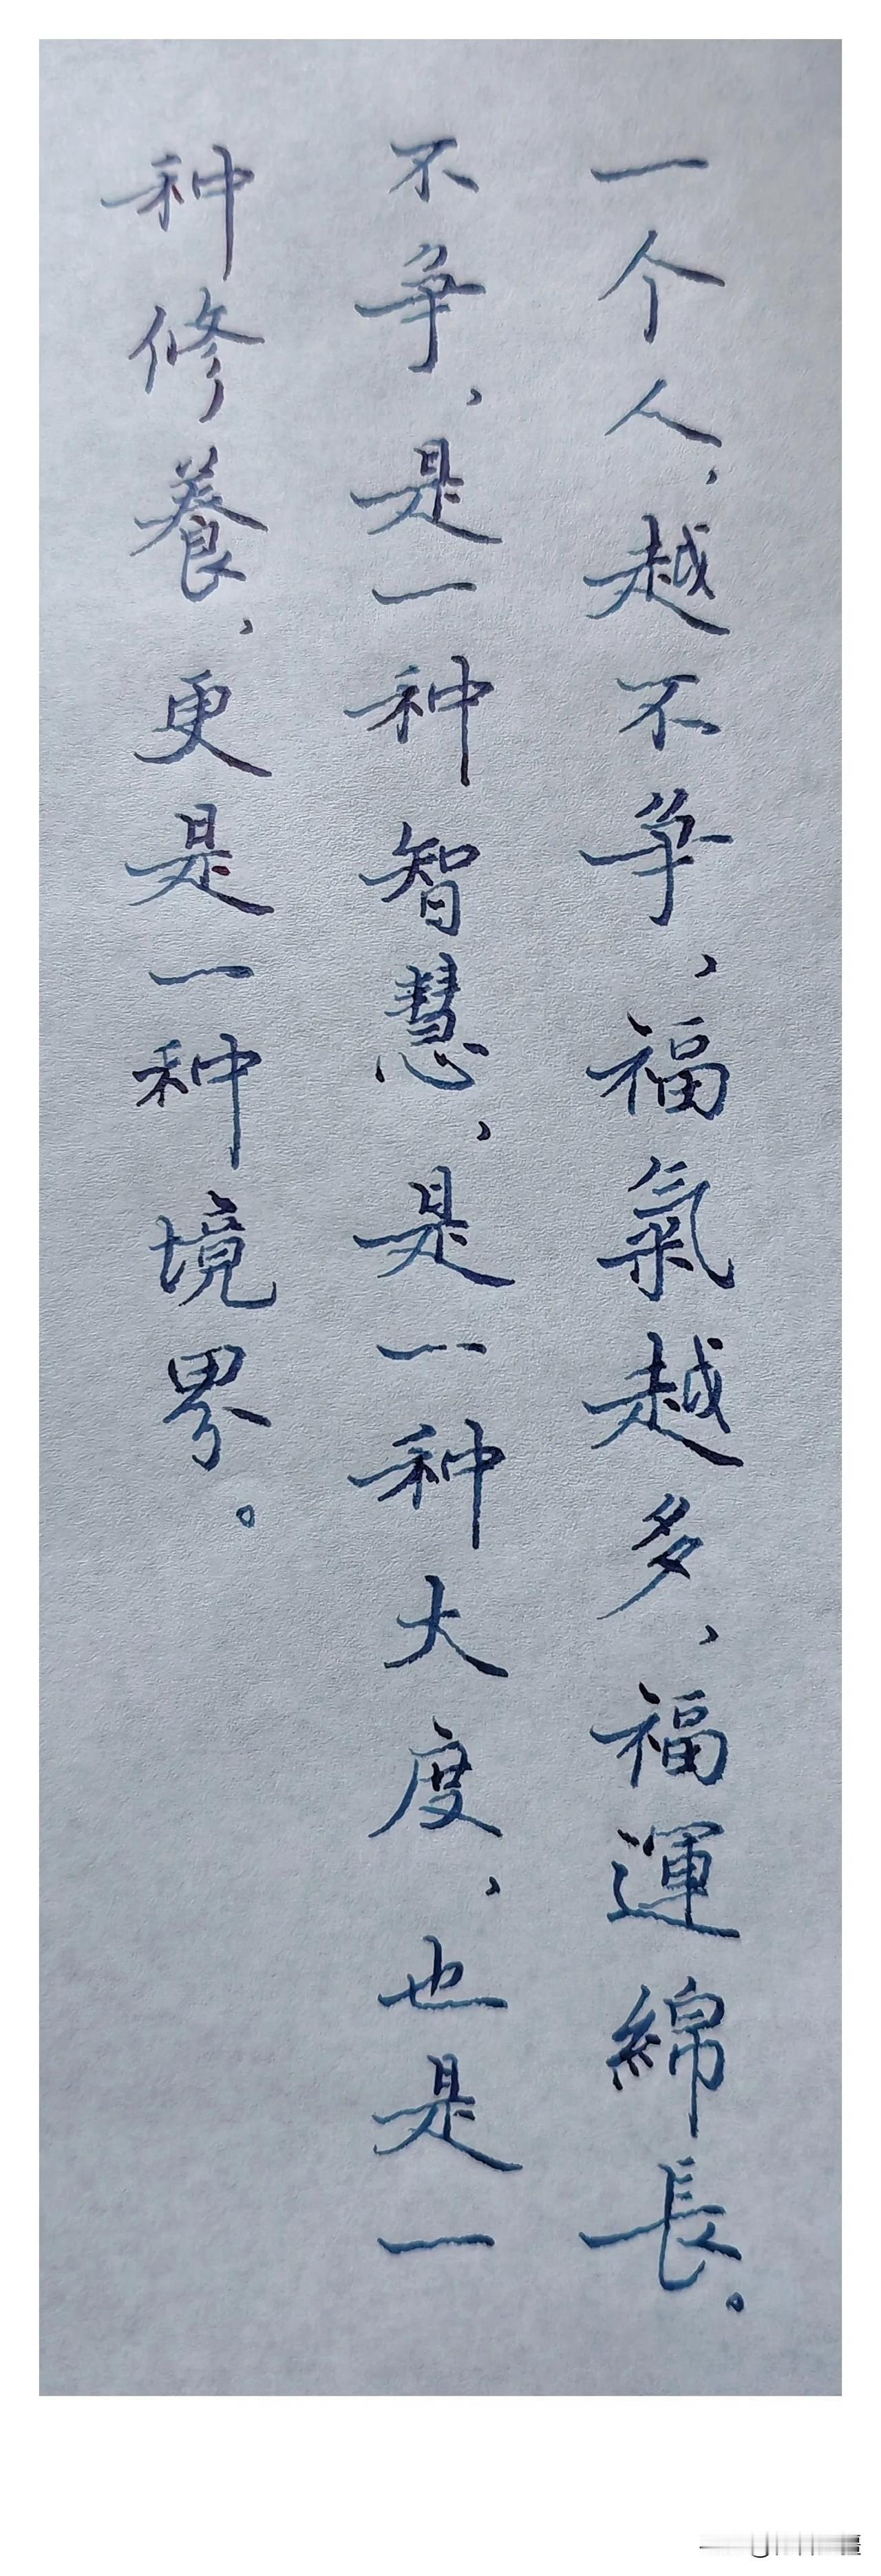 一个人，越不争，福氣越多，福運綿長。
不争，是一种智慧，是一种大度，也是一
种修養，更是一种境界。